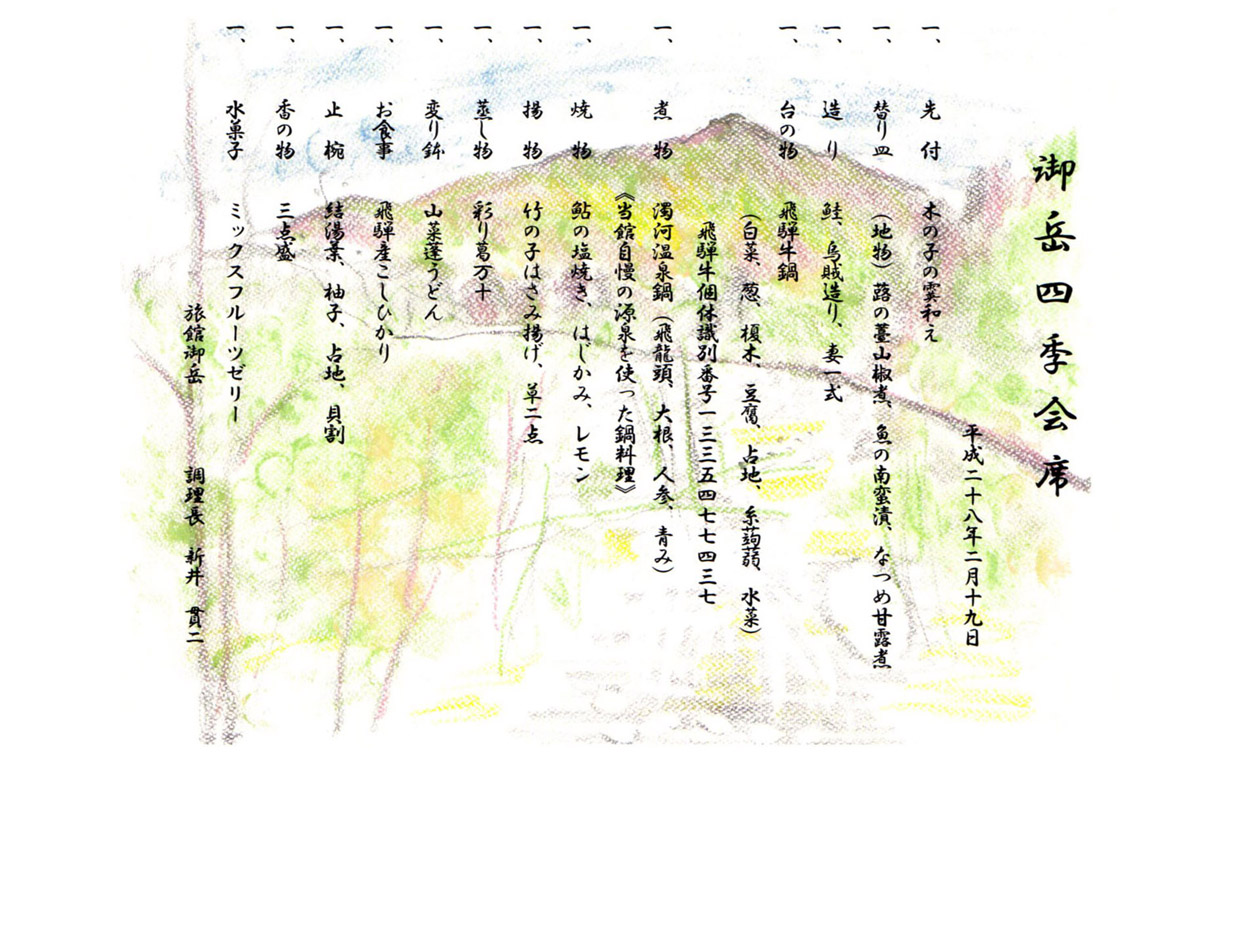 御岳四季会席
平成二十八年二月十九日
一、 先付 木の子の霙和え
一、 替り皿 （地物）蕗の薹山椒煮、魚の南蛮漬、なつめ甘露煮
一、 造り 鮭、烏賊造り、妻一式
一、 台の物 飛騨牛鍋
（白菜、葱、榎木、豆腐、占地、糸蒟蒻、水菜）
飛騨牛個体識別番号一三三五四七七四三七
一、 煮物 濁河温泉鍋（飛龍頭、大根、人参、青み）
《当館自慢の源泉を使った鍋料理》
一、 焼物 鮎の塩焼き、はじかみ、レモン
一、 揚物 竹の子はさみ揚げ、草二点
一、 蒸し物 彩り葛万十
一、 変り鉢 山菜蓬うどん
一、 お食事 飛騨産こしひかり
一、 止椀 結湯葉、柚子、占地、貝割
一、 香の物 三点盛
一、 水菓子 ミックスフルーツゼリー
旅館御岳 調理長 新井 貫二